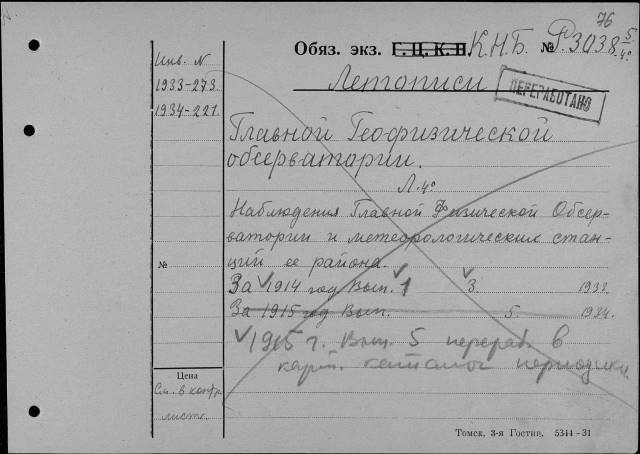 76
Обяз. экз. Г.Ц.К.П. К.Н.Б. № Р.3038 5/4°
Инв. N
1933-273
1934-221.
Летописи
ПЕРЕРАБОТАНО
Главной Геофизической
обсерватории.
Л. 4°
Наблюдения Главной Физической Обсер-
ватории и метеорологических стан-
ций ее района.
№
За √1914 год Вып. √1 √3. 1933.
За 1915 год Вып. 5. 1934.
√1915 г. Вып. 5 перераб. в
карт. каталог периодики
Цена
См. в контр.
листке.
Томск, 3-я Гостип. 5344-31